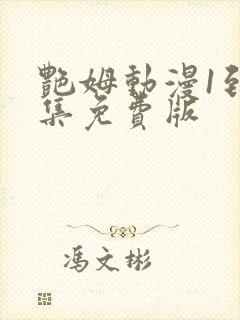 艷姆動漫1到
集免費版
馮文彬